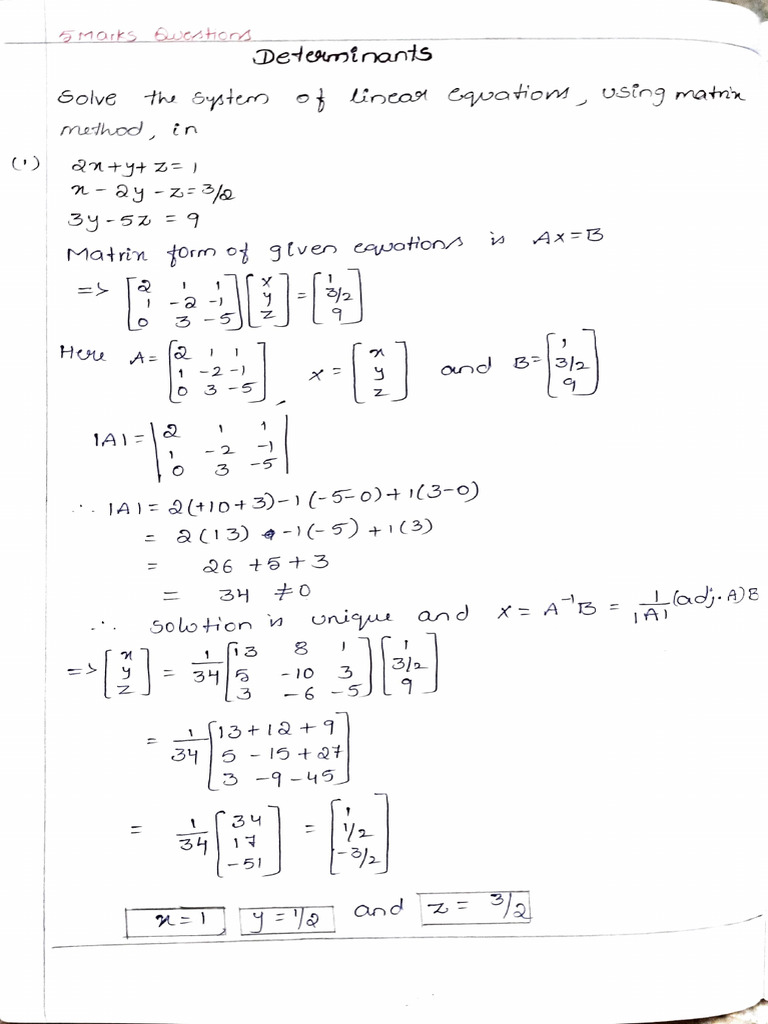 5 Marks Questions
Determinants
Solve the system of linear equations, using matrix
method, in
(1) 2x+y+z=1
x-2y-z=3/2
3y-5z=9
Matrix form of given equations is AX=B
=> [2 1 1; 1 -2 -1; 0 3 -5] [x; y; z] = [1; 3/2; 9]
Here A = [2 1 1; 1 -2 -1; 0 3 -5], X = [x; y; z] and B = [1; 3/2; 9]
|A| = |2 1 1; 1 -2 -1; 0 3 -5|
∴ |A| = 2(+10+3)-1(-5-0)+1(3-0)
= 2(13) -1(-5)+1(3)
= 26+5+3
= 34 ≠0
∴ solution is unique and X = A⁻¹B = 1/|A| (adj. A)B
=> [x; y; z] = 1/34 [13 8 1; 5 -10 3; 3 -6 -5] [1; 3/2; 9]
= 1/34 [13+12+9; 5-15+27; 3-9-45]
= 1/34 [34; 17; -51] = [1; 1/2; -3/2]
x=1 y=1/2 and z= 3/2